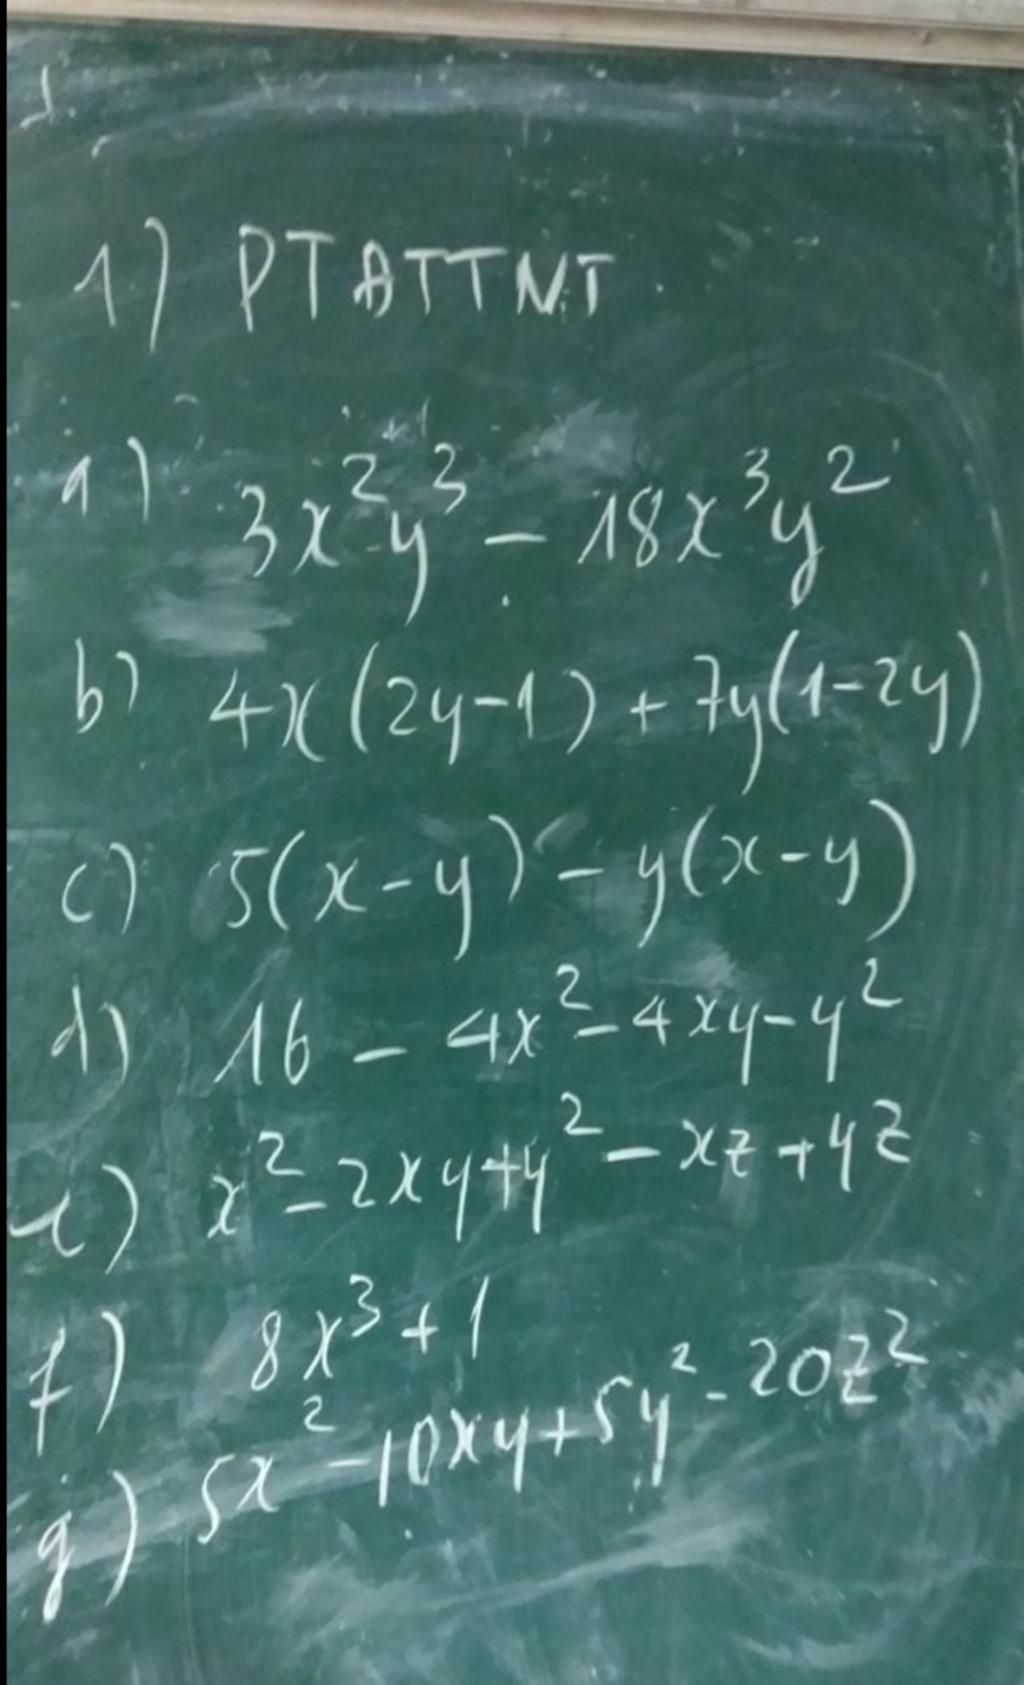 1) PTATTNT
a) 3x²y³ - 18x³y²
b) 4x(2y-1) + 7y(1-2y)
c) 5(x-y) - y(x-y)
d) 16 - 4x² - 4xy - y²
e) x² - 2xy + y² - xz + yz
f) 8x³ + 1
g) 5x² - 10xy + 5y² - 20z²